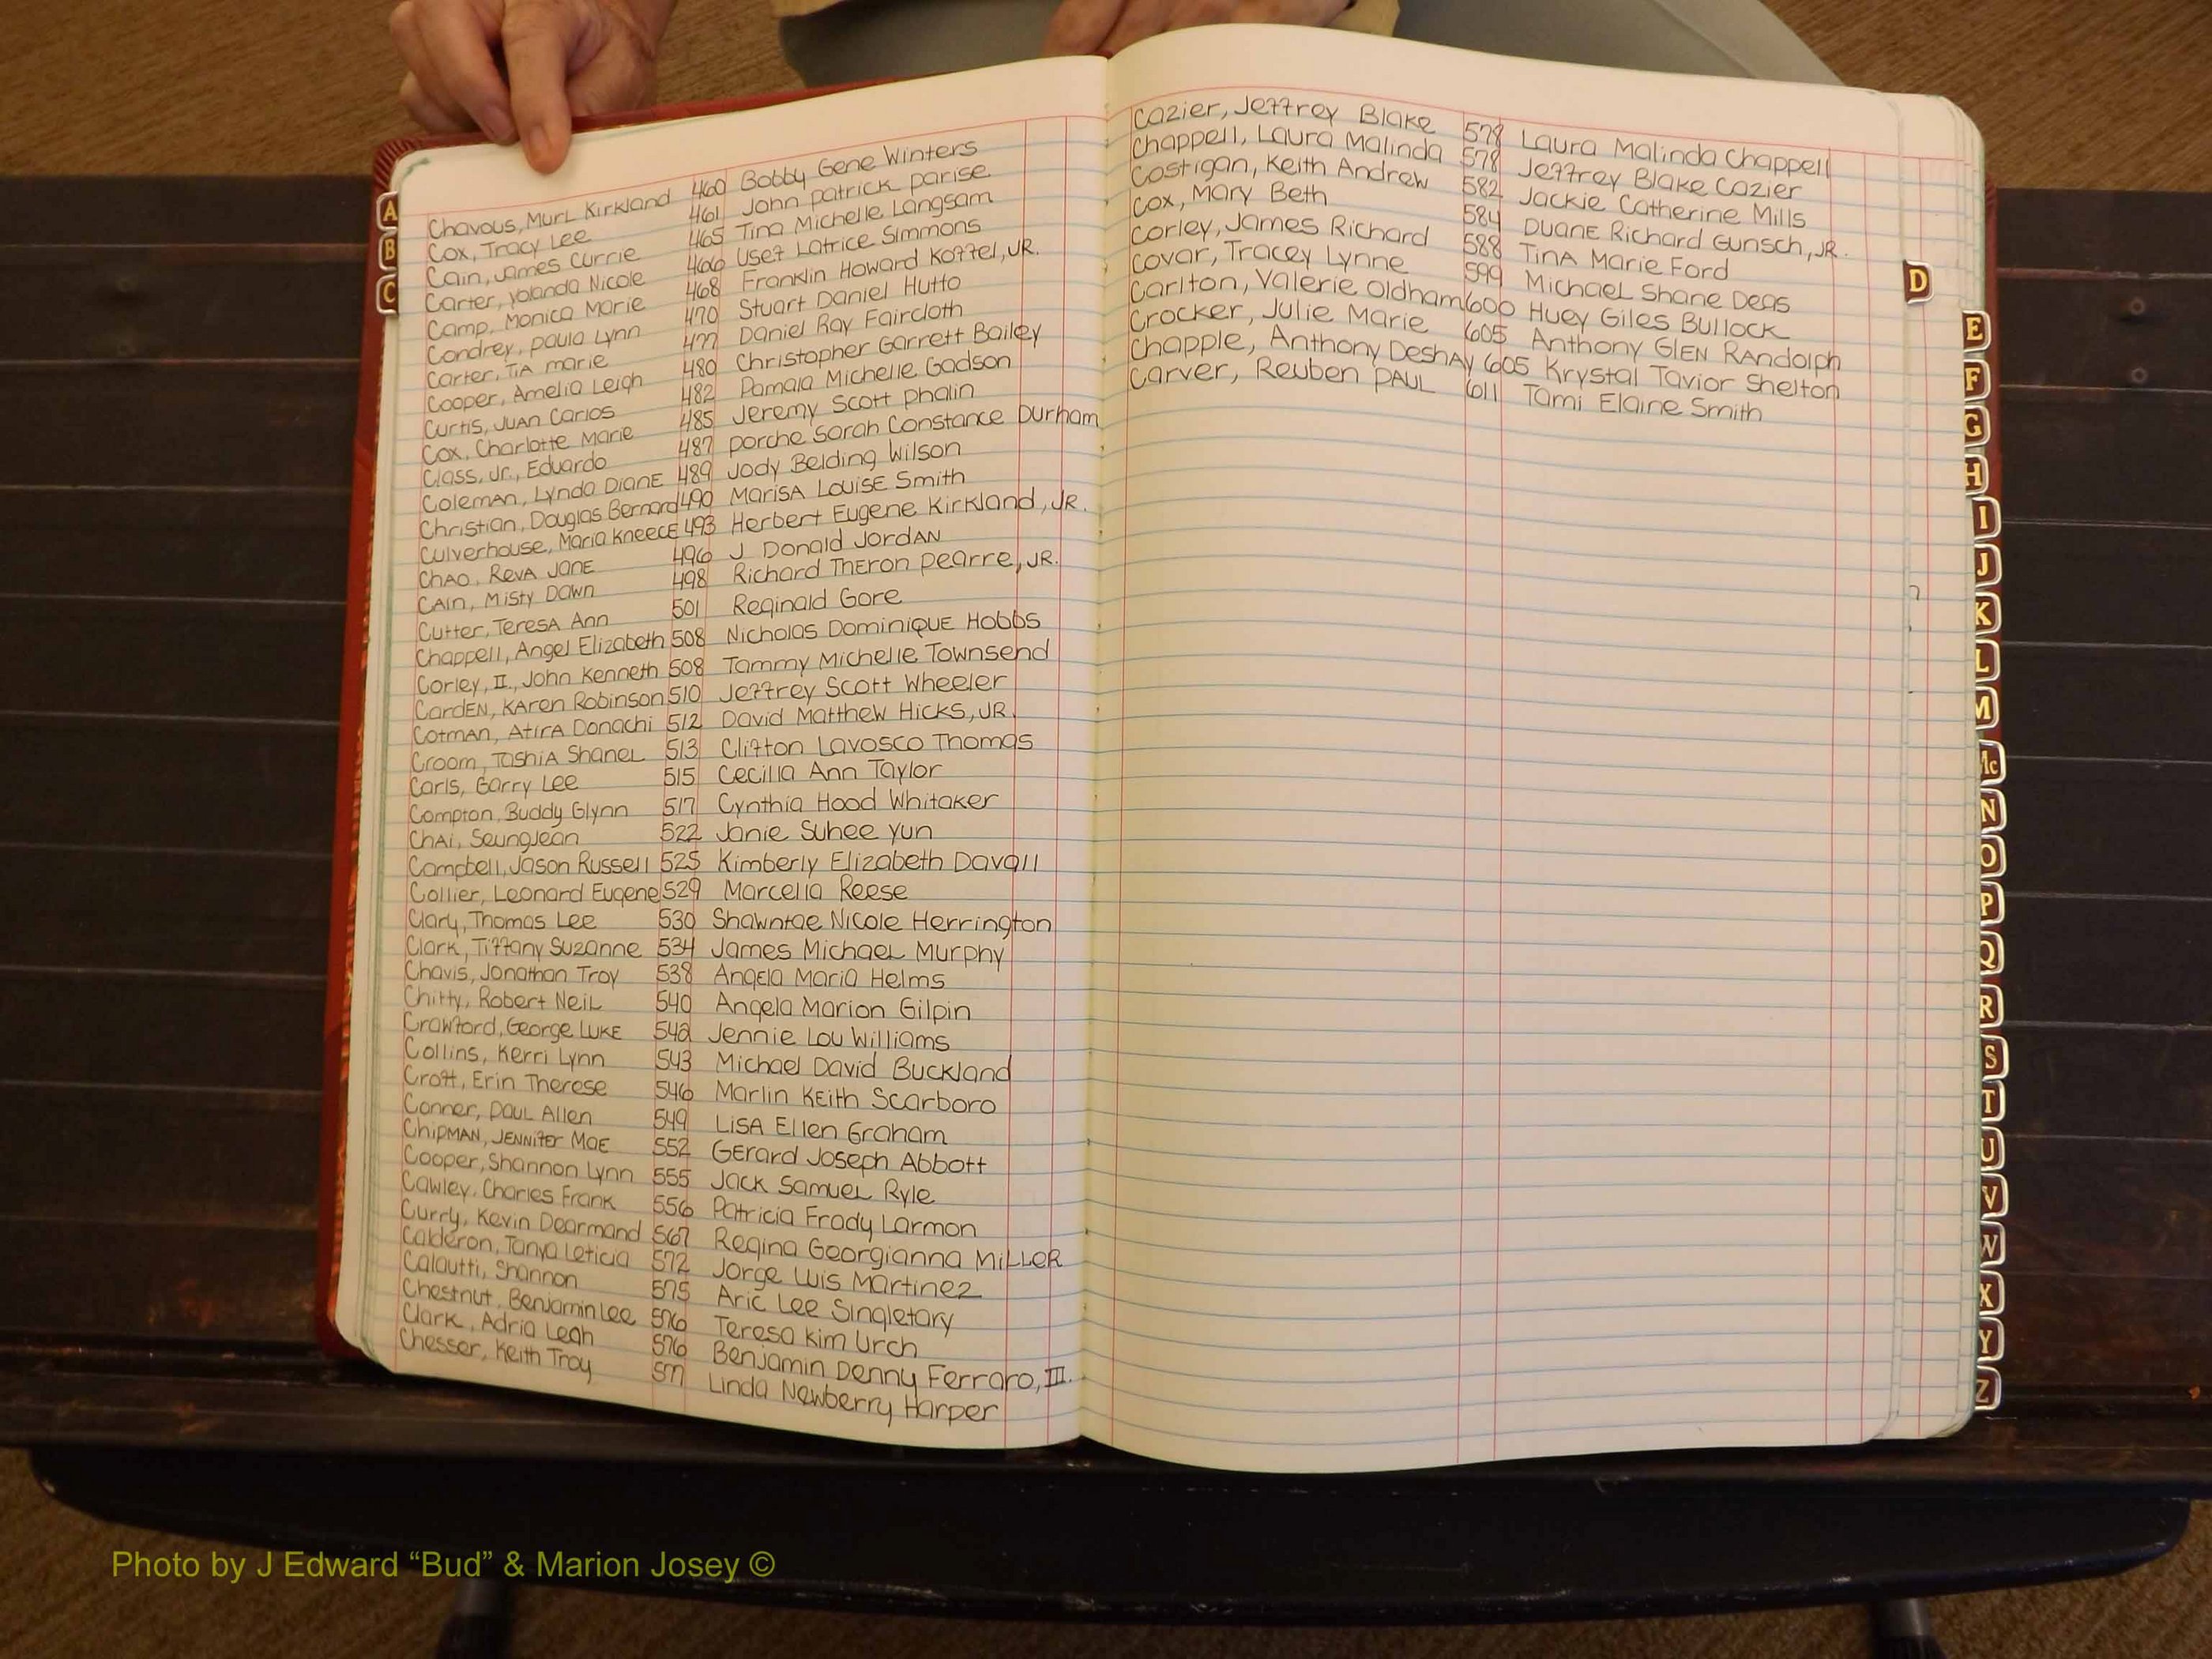 Chavous, Murl Kirkland 460 Bobby Gene Winters
Cox, Tracy Lee 461 John Patrick Parise
Cain, James Currie 465 Tina Michelle Langsam
Carter, Yolanda Nicole 466 Usef Latrice Simmons
Camp, Monica Marie 468 Franklin Howard Koffel, JR.
Condrey, Paula Lynn 470 Stuart Daniel Hutto
Carter, Tia Marie 477 Daniel Ray Faircloth
Cooper, Amelia Leigh 480 Christopher Garrett Bailey
Curtis, Juan Carlos 482 Pamala Michelle Gadson
Cox, Charlotte Marie 485 Jeremy Scott Phalin
Class, Jr., Eduardo 487 Porche Sarah Constance Durham
Coleman, Lynda Diane 489 Jody Belding Wilson
Christian, Douglas Bernard 490 Marisa Louise Smith
Culverhouse, Maria Kneece 493 Herbert Eugene Kirkland, JR.
Chao, Reva Jane 496 J. Donald Jordan
Cain, Misty Dawn 498 Richard Theron Pearre, JR.
Cutter, Teresa Ann 501 Reginald Gore
Chappell, Angel Elizabeth 508 Nicholas Dominique Hobbs
Corley, II., John Kenneth 508 Tammy Michelle Townsend
Carden, Karen Robinson 510 Jeffrey Scott Wheeler
Cotman, Atira Donachi 512 David Matthew Hicks, JR.
Croom, Tashia Shanel 513 Clifton Lavosco Thomas
Carls, Garry Lee 515 Cecilla Ann Taylor
Compton, Buddy Glynn 517 Cynthia Hood Whitaker
Chai, Seungjean 522 Janie Suhee Yun
Campbell, Jason Russell 525 Kimberly Elizabeth Davall
Collier, Leonard Eugene 529 Marcella Reese
Clary, Thomas Lee 530 Shawntae Nicole Herrington
Clark, Tiffany Suzanne 534 James Michael Murphy
Chavis, Jonathan Troy 538 Angela Maria Helms
Chitty, Robert Neil 540 Angela Marion Gilpin
Crawford, George Luke 542 Jennie Lou Williams
Collins, Kerri Lynn 543 Michael David Buckland
Croft, Erin Therese 546 Marlin Keith Scarboro
Conner, Paul Allen 549 Lisa Ellen Graham
Chipman, Jennifer Mae 552 Gerard Joseph Abbott
Cooper, Shannon Lynn 555 Jack Samuel Ryle
Cawley, Charles Frank 556 Patricia Frady Larmon
Curry, Kevin Dearmand 567 Regina Georgianna Miller
Calderon, Tanya Leticia 572 Jorge Luis Martinez
Calautti, Shannon 575 Aric Lee Singletary
Chestnut, Benjamin Lee 576 Teresa Kim Urch
Clark, Adria Leah 576 Benjamin Denny Ferraro, III.
Chesser, Keith Troy 577 Linda Newberry Harper
Cazier, Jeffrey Blake 578 Laura Malinda Chappell
Chappell, Laura Malinda 578 Jeffrey Blake Cazier
Costigan, Keith Andrew 582 Jackie Catherine Mills
Cox, Mary Beth 584 Duane Richard Gunsch, JR.
Corley, James Richard 588 Tina Marie Ford
Covar, Tracey Lynne 599 Michael Shane Deas
Carlton, Valerie Oldham 600 Huey Giles Bullock
Crocker, Julie Marie 605 Anthony Glen Randolph
Chapple, Anthony Deshay 605 Krystal Tavior Shelton
Carver, Reuben Paul 611 Tami Elaine Smith
A
B
C
D
E
F
G
H
I
J
K
L
M
Mc
N
O
P
Q
R
S
T
U
V
W
X
Y
Z
Photo by J Edward “Bud” & Marion Josey ©